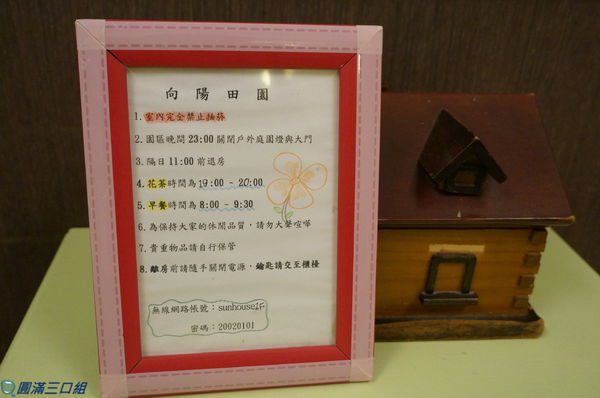 向陽田園
1.室內完全禁止抽菸
2.園區晚間 23:00 關閉戶外庭園燈與大門
3.隔日 11:00 前退房
4.花茶時間為 19:00 - 20:00
5.早餐時間為 8:00 - 9:30
6.為保持大家的休閒品質，請勿大聲喧嘩
7.貴重物品請自行保管
8.離房前請隨手關閉電源，鑰匙請交至櫃檯
無線網路帳號：sunhouse2F
密碼：20020101
圓滿三口組